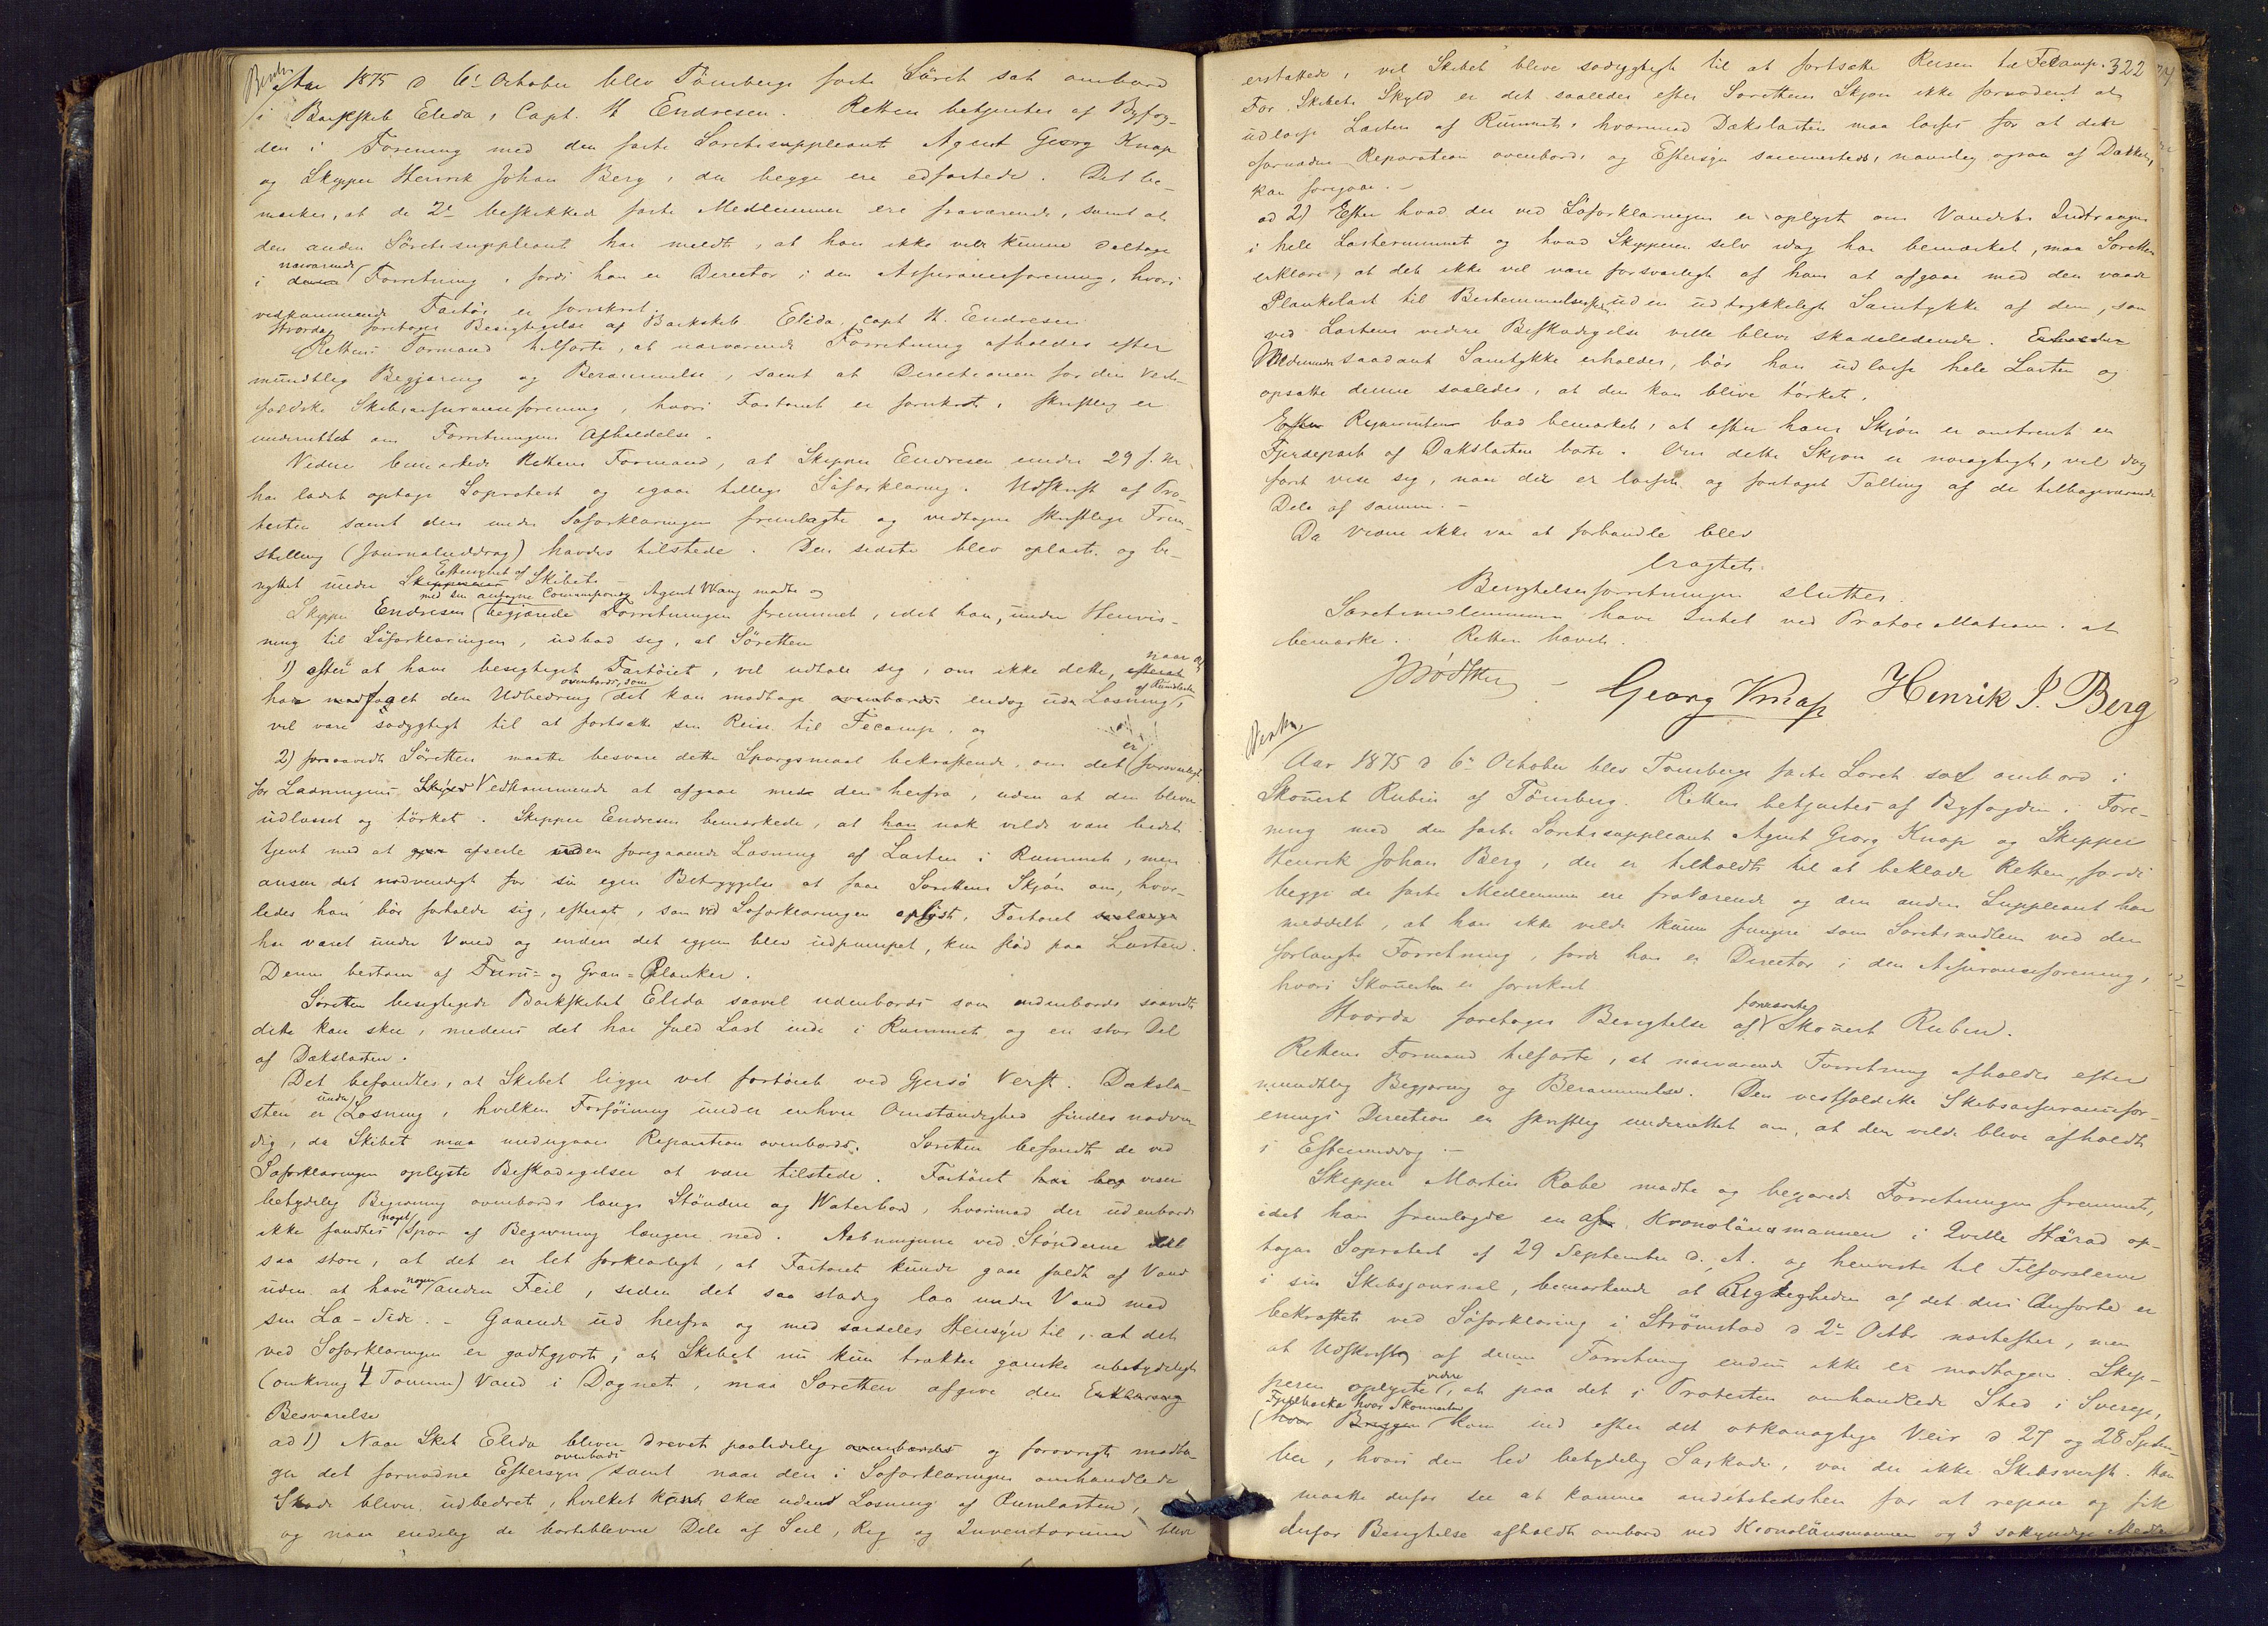 Aar 1875 d 6te October blev Tönsbergs faste Söret sat ombord
i Barkskib Elida, Capt. H Endresen. Retten betjentes af Byfog-
den i Forening med den faste Söretssuppleant Agent Georg Knap
og Skipper Henrik Johan Berg, der begge ere edfæstede. Det be-
mærkes, at de 2de beskikkede faste Medlemmer ere fraværende, samt at
den anden Söretssuppleant har meldt, at han ikke vilde kunne deltage
i nærværende Forretning, fordi han er Director i den Assuranceforening, hvori
vedkommende Fartöi er forsikret.
Hvorda foretages Besigtigelse af Barkskib Elida, capt H. Endresen
Rettens Formand tilförte, at nærværende Forretning afholdes efter
mundtlig Begjæring og Berammelse, samt at Directionen for den Vest-
foldske Skibsassuranceforening, hvori Fartöiet er forsikret, skriftlig er
underrettet om Forretningens Afholdelse.
Videre bemærkede Rettens Formand, at Skipper Endresen under 29 f. M.
har ladet optage Söprotest og igaar tillige Söforklaring. Udskrift af Pro-
testen samt den under Söforklaringen fremlagte og vedtagne skriftlige Frem-
stilling (Journaluddrag) havdes tilstede. Den sidste blev oplæst og be-
nyttet under Eftersynet af Skibet.
Skipper Endresen med sin antagne Commissionær Agent Wang mødte og begjærede Forretningen fremmet, idet han, under Henvis-
ning til Söforklaringen, udbad sig, at Söretten
1) efter at have besigtiget Fartöiet, vil udtale sig, om ikke dette, naar det
har modtaget den Udbedring ovenbords, som det kan modtage endog uden Losning af Rumlasten,
vil være södygtigt til at fortsætte sin Reise til Fécamp, og
2) forsaavidt Söretten maatte besvare dette Spørgsmaal bekræftende, om det er forsvarligt
for Ladningens Vedkommende at afgaa med den herfra, uden at den bliver
udlosset og törket. Skipper Endresen bemærkede, at han nok vilde være bedst
tjent med at afseile uden foregaaende Losning af Lasten i Rummet, men
anser det nødvendigt for sin egen Betryggelse at faa Sørettens Skjön om, hvor-
ledes han bör forholde sig, efterat, som ved Søforklaringen oplyst, Fartöiet
har været under Vand og inden det igjen blev udpumpet, kun flöd paa Lasten.
Denne bestaar af Furu- og Gran-Planker.
Søretten besigtigede Barkskibet Elida saavel udenbords som indenbords saavidt
dette kan skee, medens det har fuld Last inde i Rummet og en stor Del
af Dækslasten.
Det befandtes, at Skibet ligger vel fortöiet ved Gjersö Verft. Dæksla-
sten er under Losning, hvilken Forföining under enhver Omstændighed findes nødven-
dig, da Skibet maa undergaae Reparation ovenbords. Søretten befandt de ved
Søforklaringen oplyste Beskadigelser at være tilstede. Fartöiet viser
betydelig Begivning ovenbords langs Stöndere og Waterbord, hvorimod der udenbords
ikke fandtes noget Spor af Begivning længere ned. Aabningerne ved Stönderne
saa store, at det er let forklarligt, at Fartöiet kunde gaae fuldt af Vand
uden at have nogen anden Feil, siden det saa stadig laa under Vand med
sin Læ-Side. Gaaende ud herfra og med særdeles Hensyn til, at det
ved Søforklaringen er godtgjort, at Skibet nu kun trækker ganske ubetydeligt
(omkring 4 Tommer) Vand i Døgnet, maa Søretten afgive den
Besvarelse
ad 1) Naar Skibet Elida bliver drevet paalidelig og forøvrigt modta-
ger det fornødne Eftersyn ovenbords samt naar den i Søforklaringen omhandlede
Skade bliver udbedret, hvilket kan skee uden Losning af Rumlasten,
og naar endelig de bortblevne Dele af Seil, Rig og Inventarium bliver
erstattede, vil Skibet blive sødygtigt til at fortsætte Reisen til Fécamp. 322
For Skibets Skyld er det saaledes efter Sørettens Skjøn ikke fornødent at
udlosse Lasten af Rummet, hvorimod Dækslasten maa losses for at den
fornødne Reparation ovenbords og Eftersyn sammesteds, navnlig ogsaa af Dækket,
kan foregaa. -
ad 2) Efter hvad der ved Søforklaringen er oplyst om Vandets Indtrængen
i hele Lasterummet og hvad Skipperen selv idag har bemærket, maa Søretten
erklære, at det ikke vil være forsvarligt af ham at afgaa med den vaade
Plankelast til Bestemmelsesstedet uden udtrykkeligt Samtykke af dem, som
ved Lastens videre Beskadigelse ville blive skadelidende.
Medmindre saadant Samtykke erholdes, bör han udlosse hele Lasten og
opsætte denne saaledes, at den kan blive törket.
Requirenten bad bemærket, at efter hans Skjön er omtrent en
Fjerdepart af Dækslasten borte. Om dette Skjøn er nøiagtigt, vil dog
først vise sig, naar der er losset og foretaget Tælling af de tilbageværende
Dele af samme. -
Da videre ikke var at forhandle blev
eragtet:
Besigtelsesforretningen sluttes.
Søretsmedlemmerne have Intet ved Protocollationen at
bemærke. Retten hævet.
JBödtker - Georg Knap Henrik J. Berg
Aar 1875 d 6te October blev Tønsbergs faste Søret sat ombord i
Skonnert Rubin af Tönsberg. Retten betjentes af Byfogden i Fore-
ning med den faste Søretssuppleant Agent Georg Knap og Skipper
Henrik Johan Berg, der er tilkaldt til at beklæde Retten, fordi
begge de faste Medlemmer ere fraværende og den anden Suppleant har
meddelt, at han ikke vilde kunne fungere som Søretsmedlem ved den
forlangte Forretning, fordi han er Director i den Assuranceforening,
hvori Skonnerten er forsikret.
Hvorda foretages Besigtelse af Skonnert Rubin.
Rettens Formand tilførte, at nærværende Forretning afholdes efter
mundtlig Begjæring og Berammelse. Den vestfoldske Skibsassurancefor-
enings Direction er skriftlig underrettet om, at den vilde blive afholdt
i Eftermiddag. -
Skipper Martin Rabe mødte og begjærede Forretningen fremmet,
idet han fremlagde en af Kronolänsmannen i Qville Härad op-
tagen Søprotest af 29 September d. A. og henviste til Tilførslerne
i sin Skibsjournal, bemærkende at Rigtigheden af det deri Anførte er
bekræftet ved Söforklaring i Strömstad d 2den Octbr næstefter, men
at Udskrift af denne Forretning endnu ikke er modtagen. Skip-
peren oplyste videre, at paa det i Protesten omhandlede Sted i Sverige,
Fjelbacka hvor Skonnerten kom ind efter det orkanagtige Veir d 27 og 28 Septem-
ber, hvori den led betydelig Søskade, var der ikke Skibsverft. Han
maatte derfor see at komme andetstedshen for at repare og fik
derfor Besigtelse afholdt ombord ved Kronolänsmannen og 3 søkyndige Mænd